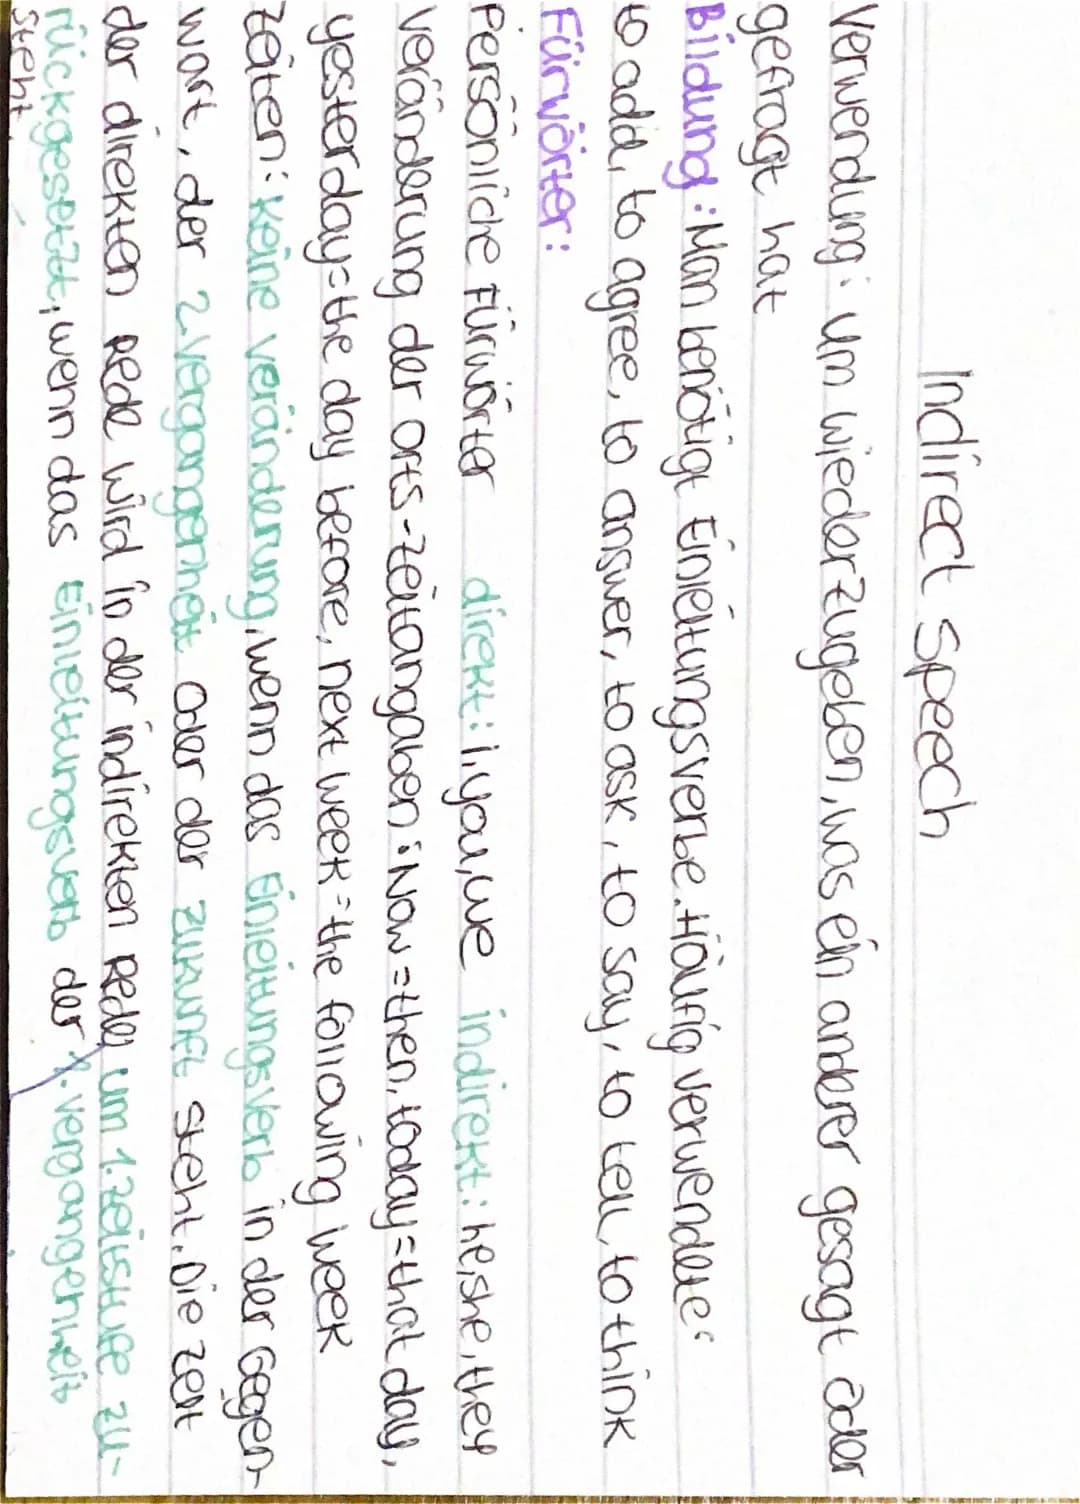 Indirect Speech
Verwendung: um wiederzugeben, was ein anderer gesagt oder
gefragt hat
Bildung: Man benötigt Einleitungsverbe. Häufig verwendete:
to add, to agree, to answer, to ask, to say, to tell, to think
Fürwörter:
Persönliche Fürwörter direkt: i, you, we indirekt: he, she, they
Veränderung der orts-zeitangaben: Now = then, today = that day,
yesterday = the day before, next week = the following week
zeiten: Keine veränderung, wenn das Einleitungsverb in der Gegen-
wart, der 2. vergangenheit oder der zukunft steht. Die zeit
der direkten Rede wird in der indirekten Rede um 1. zeitstufe zu-
rückgesetzt, wenn das Einleitungsverb der 1. vergangenheit
steht.